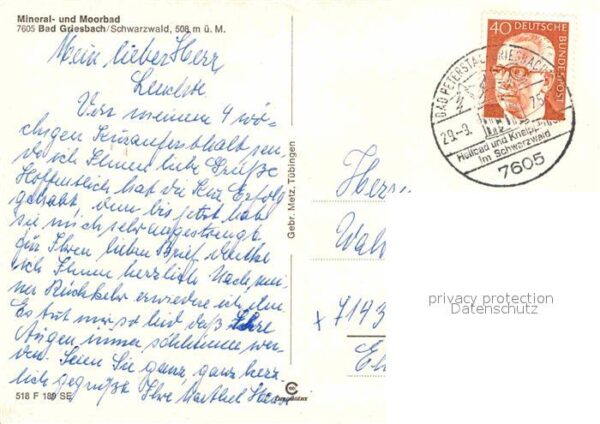 Mineral- und Moorbad
7605 Bad Griesbach/Schwarzwald, 508 m ü. M.
Mein lieber Herr
Leuchte
Von meinem 4 wö-
chigen Kuraufenthalt sen-
de ich Ihnen liebe Grüße
Hoffentlich hat die Kur Erfolg
gehabt denn bis jetzt hat
sie mich sehr angestrengt
Für Ihren lieben Brief danke
ich Ihnen herzlich. Nach mei-
ner Rückkehr erwidere ich ihn.
Es tut mir so leid daß Ihre
Augen immer schlimmer wer-
den. Seien Sie ganz ganz herz-
lich gegrüßt Ihre
518 F 189 SE
Gebr. Metz, Tübingen
40 DEUTSCHE BUNDESPOST
BAD PETERSTAL-GRIESBACH
29.-9.
75
Heilbad und Kneipp
im Schwarzwald
7605
x 7143
privacy protection
Datenschutz